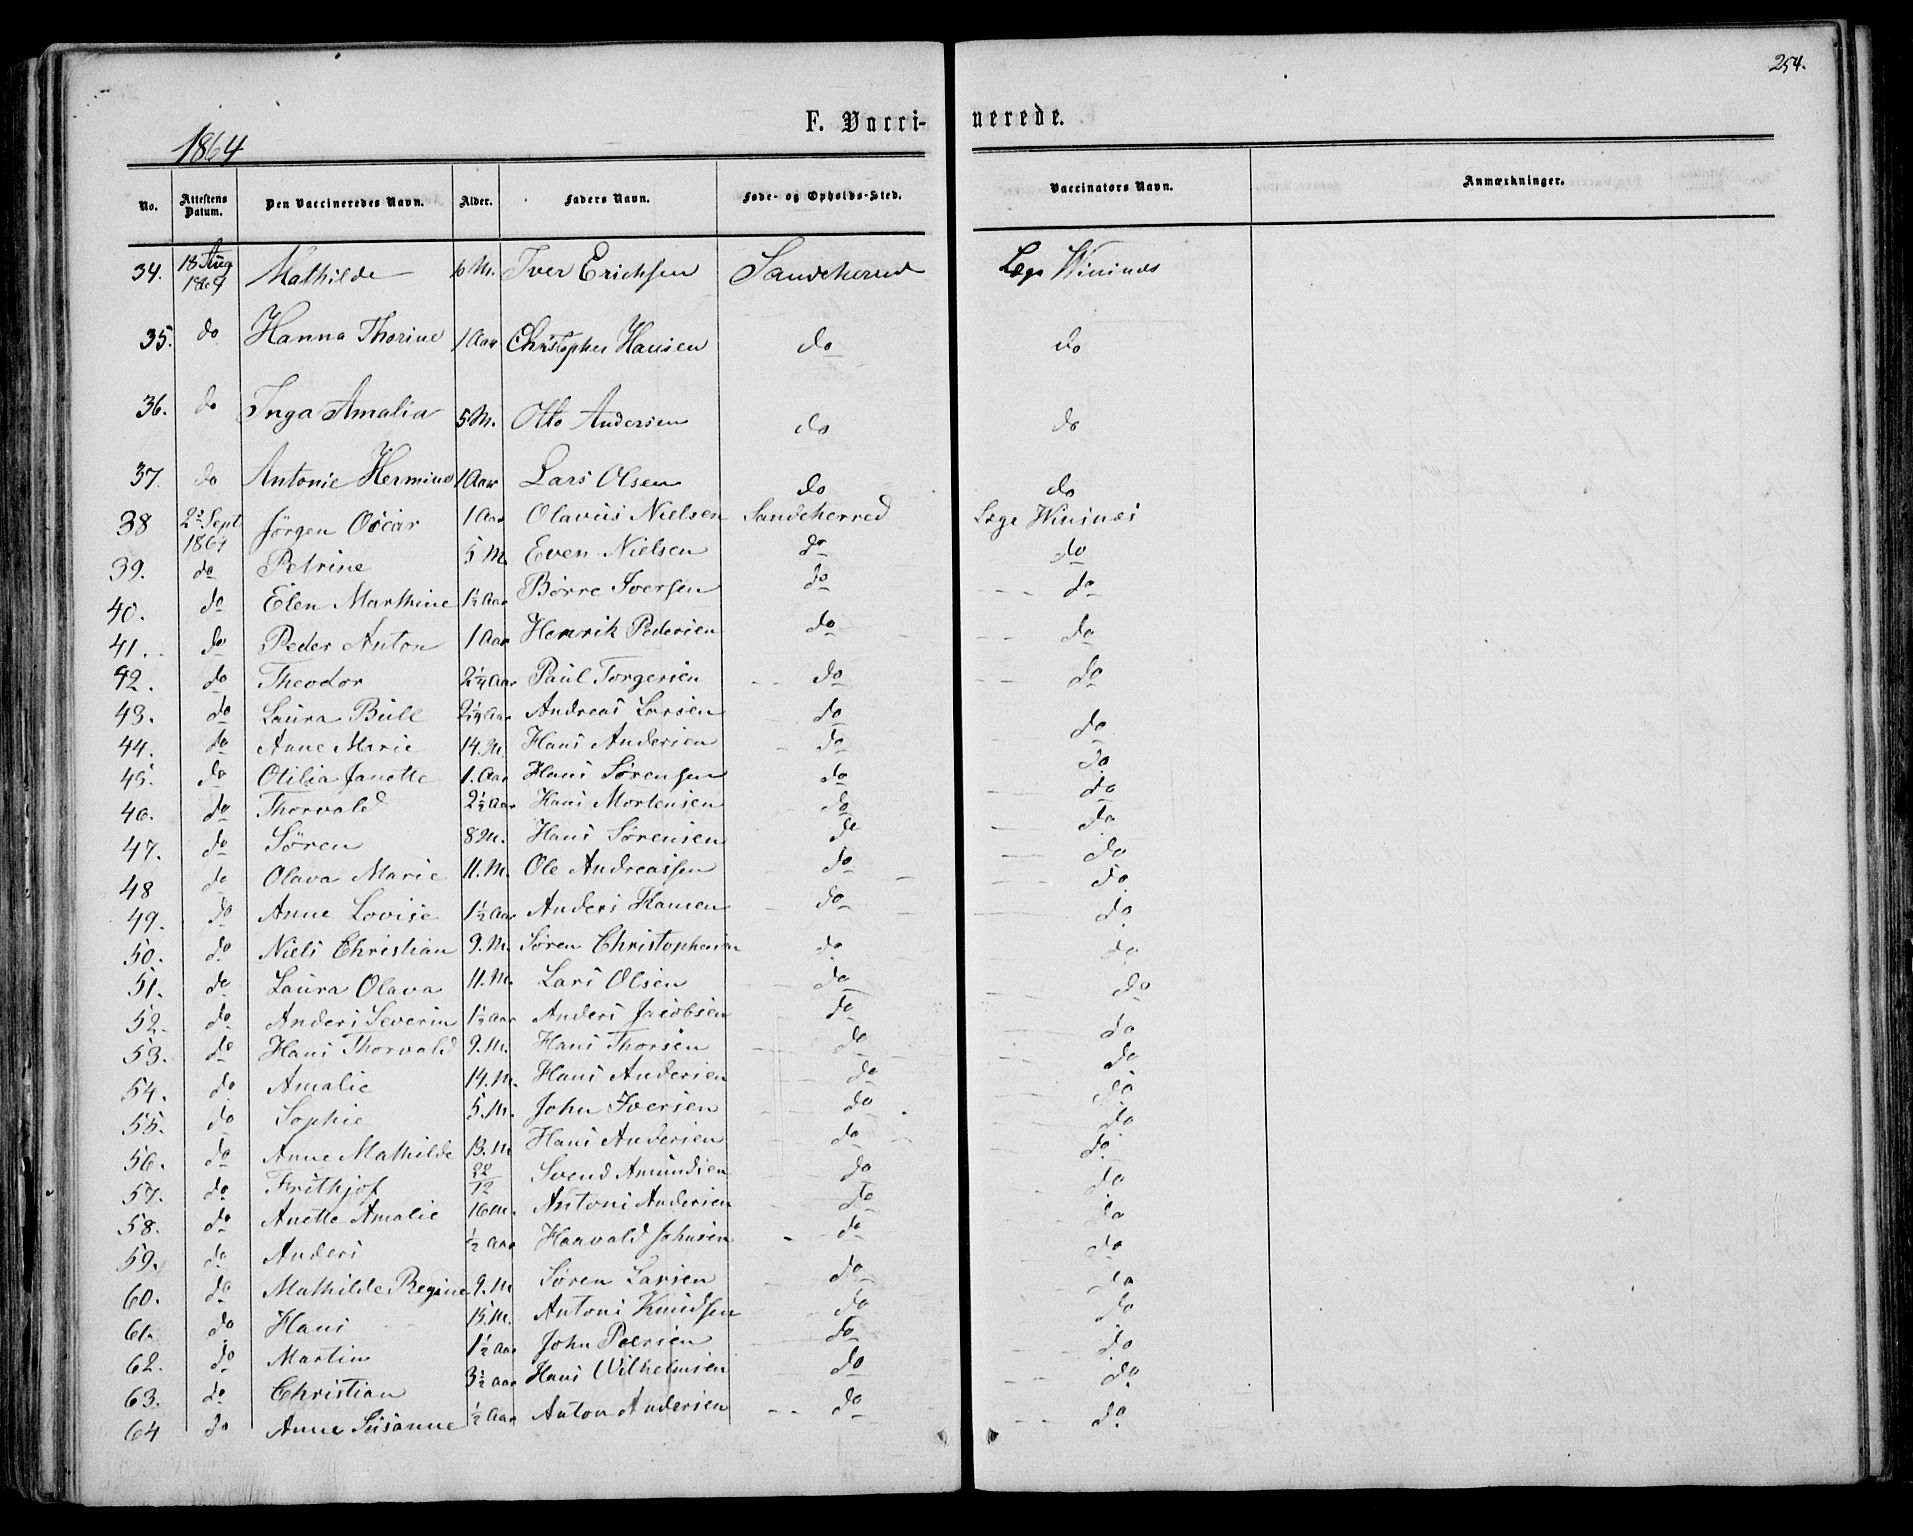 254.
F. Vacci- nerede.
1864
No. Attestens Datum. Den Vaccineredes Navn. Alder. Faders Navn. Føde- og Opholds-Sted. Vaccinators Navn. Anmærkninger.
34. 18 Aug 1864 Mathilde 6 M. Iver Erichsen Sandeherred Læge
35. do Hanna Thorine 1 Aar Christopher Hansen do do
36. do Inga Amalia 5 M. Otto Andersen do do
37. do Antonie Hermine 1 Aar Lars Olsen do do
38 2 Sept 1864 Jørgen Oscar 1 Aar Olavus Nielsen Sandeherred Læge
39. do Petrine 5 M Even Nielsen do do
40. do Elen Marthine 1½ Aar Børre Iversen do do
41. do Peder Anton 1 Aar Henrik Pedersen do do
42. do Theodor 2¼ Aar Paul Torgersen do do
43. do Laura Bull 2¼ Aar Andreas Larsen do do
44. do Anne Marie 14. M Hans Andersen do do
45. do Otilia Janette 1. Aar Hans Sørensen do do
46. do Thorvald 2½ Aar Hans Mortensen do do
47. do Søren 8 M. Hans Sørensen do do
48 do Olava Marie 11. M. Ole Andreassen do do
49. do Anne Lovise 1½ Aar Anders Hansen do do
50. do Niels Christian 9. M. Søren Christophersen do do
51. do Laura Olava 11. M. Lars Olsen do do
52. do Anders Severin 1½ Aar Anders Jacobsen do do
53. do Hans Thorvald 9. M. Hans Thorsen do do
54. do Amalie 14. M. Hans Andersen do do
55. do Sophie 5. M. John Iversen do do
56. do Anne Mathilde 13. M Hans Andersen do do
57. do Frithjof 22/12 Svend Amundsen do do
58. do Anette Amalie 16 M. Antoni Andersen do do
59. do Anders ½ Aar Haavald Johnsen do do
60. do Mathilde Regine 9. M Søren Larsen do do
61. do Hans 15 M. Antoni Knudsen do do
62. do Martin 1½ Aar John Peersen do do
63. do Christian 3½ Aar Hans Wilhelmsen do do
64 do Anne Susanne ½ Aar Anton Andersen do do